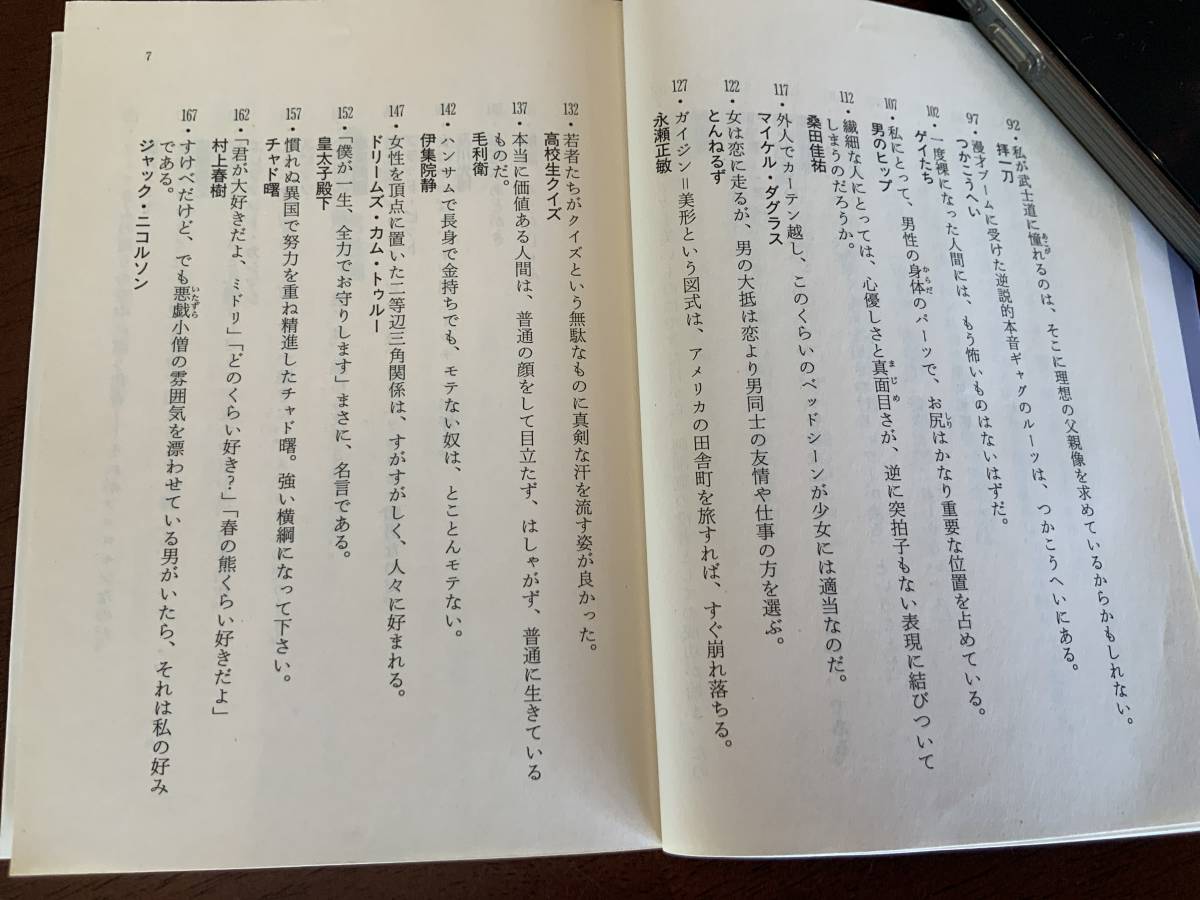 92・私が武士道に憧れるのは、そこに理想の父親像を求めているからかもしれない。
あこが
拝一刀
97・漫才ブームに受けた逆説的本音ギャグのルーツは、つかこうへいにある。
つかこうへい
102・一度裸になった人間には、もう怖いものはないはずだ。
ゲイたち
107・私にとって、男性の身体のパーツで、お尻はかなり重要な位置を占めている。
からだ
しり
男のヒップ
112・繊細な人にとっては、心優しさと真面目さが、逆に突拍子もない表現に結びついて
まじめ
しまうのだろうか。
桑田佳祐
117・外人でカーテン越し、このくらいのベッドシーンが少女には適当なのだ。
マイケル・ダグラス
122・女は恋に走るが、男の大抵は恋より男同士の友情や仕事の方を選ぶ。
とんねるず
127・ガイジン＝美形という図式は、アメリカの田舎町を旅すれば、すぐ崩れ落ちる。
永瀬正敏
132・若者たちがクイズという無駄なものに真剣な汗を流す姿が良かった。
高校生クイズ
137・本当に価値ある人間は、普通の顔をして目立たず、はしゃがず、普通に生きている
ものだ。
毛利衛
142・ハンサムで長身で金持ちでも、モテない奴は、とことんモテない。
伊集院静
147・女性を頂点に置いた二等辺三角関係は、すがすがしく、人々に好まれる。
ドリームズ・カム・トゥルー
152・「僕が一生、全力でお守りします」まさに、名言である。
皇太子殿下
157・慣れぬ異国で努力を重ね精進したチャド曙。強い横綱になって下さい。
チャド曙
162・「君が大好きだよ、ミドリ」「どのくらい好き？」「春の熊くらい好きだよ」
村上春樹
167・すけべだけど、でも悪戯小僧の雰囲気を漂わせている男がいたら、それは私の好み
いたずら
である。
ジャック・ニコルソン
7